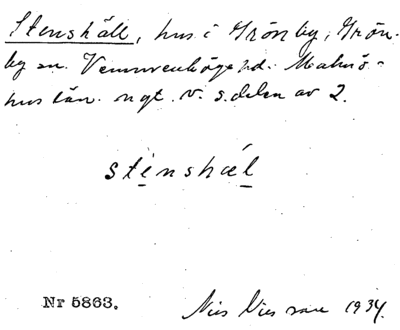 Stenshäll, hus i Grönby, Grön-
by sn. Vemmenhögs hd. Malmö-
hus län. ngt. v. s. delen av 2.
stenshæl
Nr 5863.
Nils Nilsson 1934.